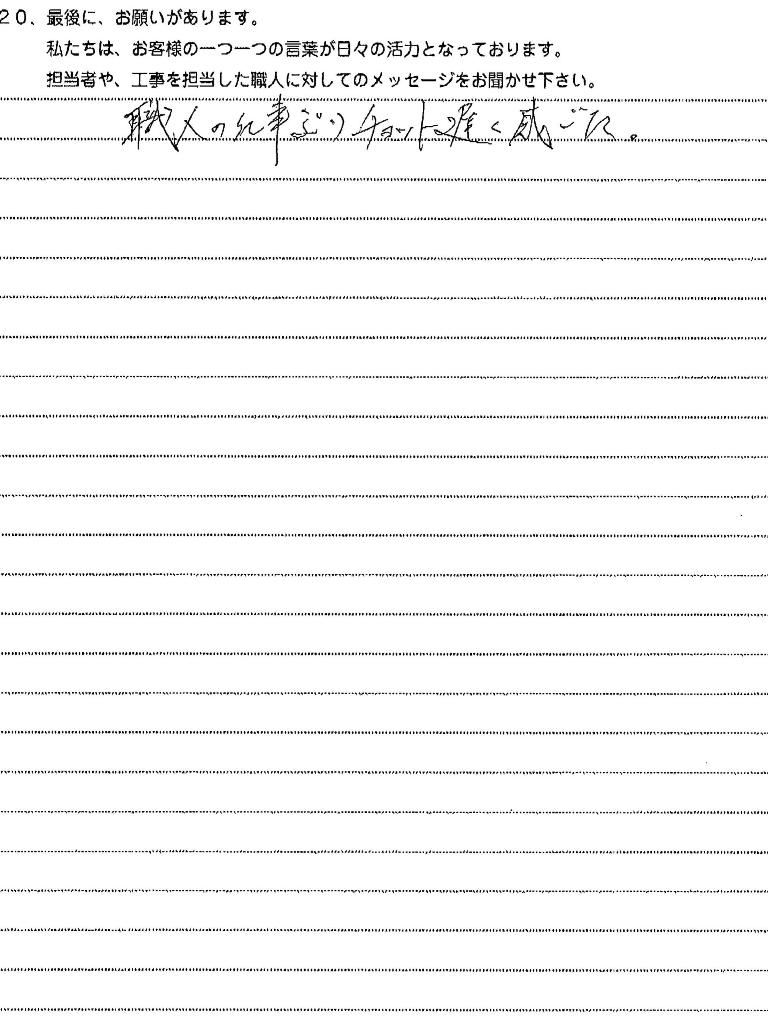 20、最後に、お願いがあります。
私たちは、お客様の一つ一つの言葉が日々の活力となっております。
担当者や、工事を担当した職人に対してのメッセージをお聞かせ下さい。
職人の仕事ぶりチョット遅く感じた。